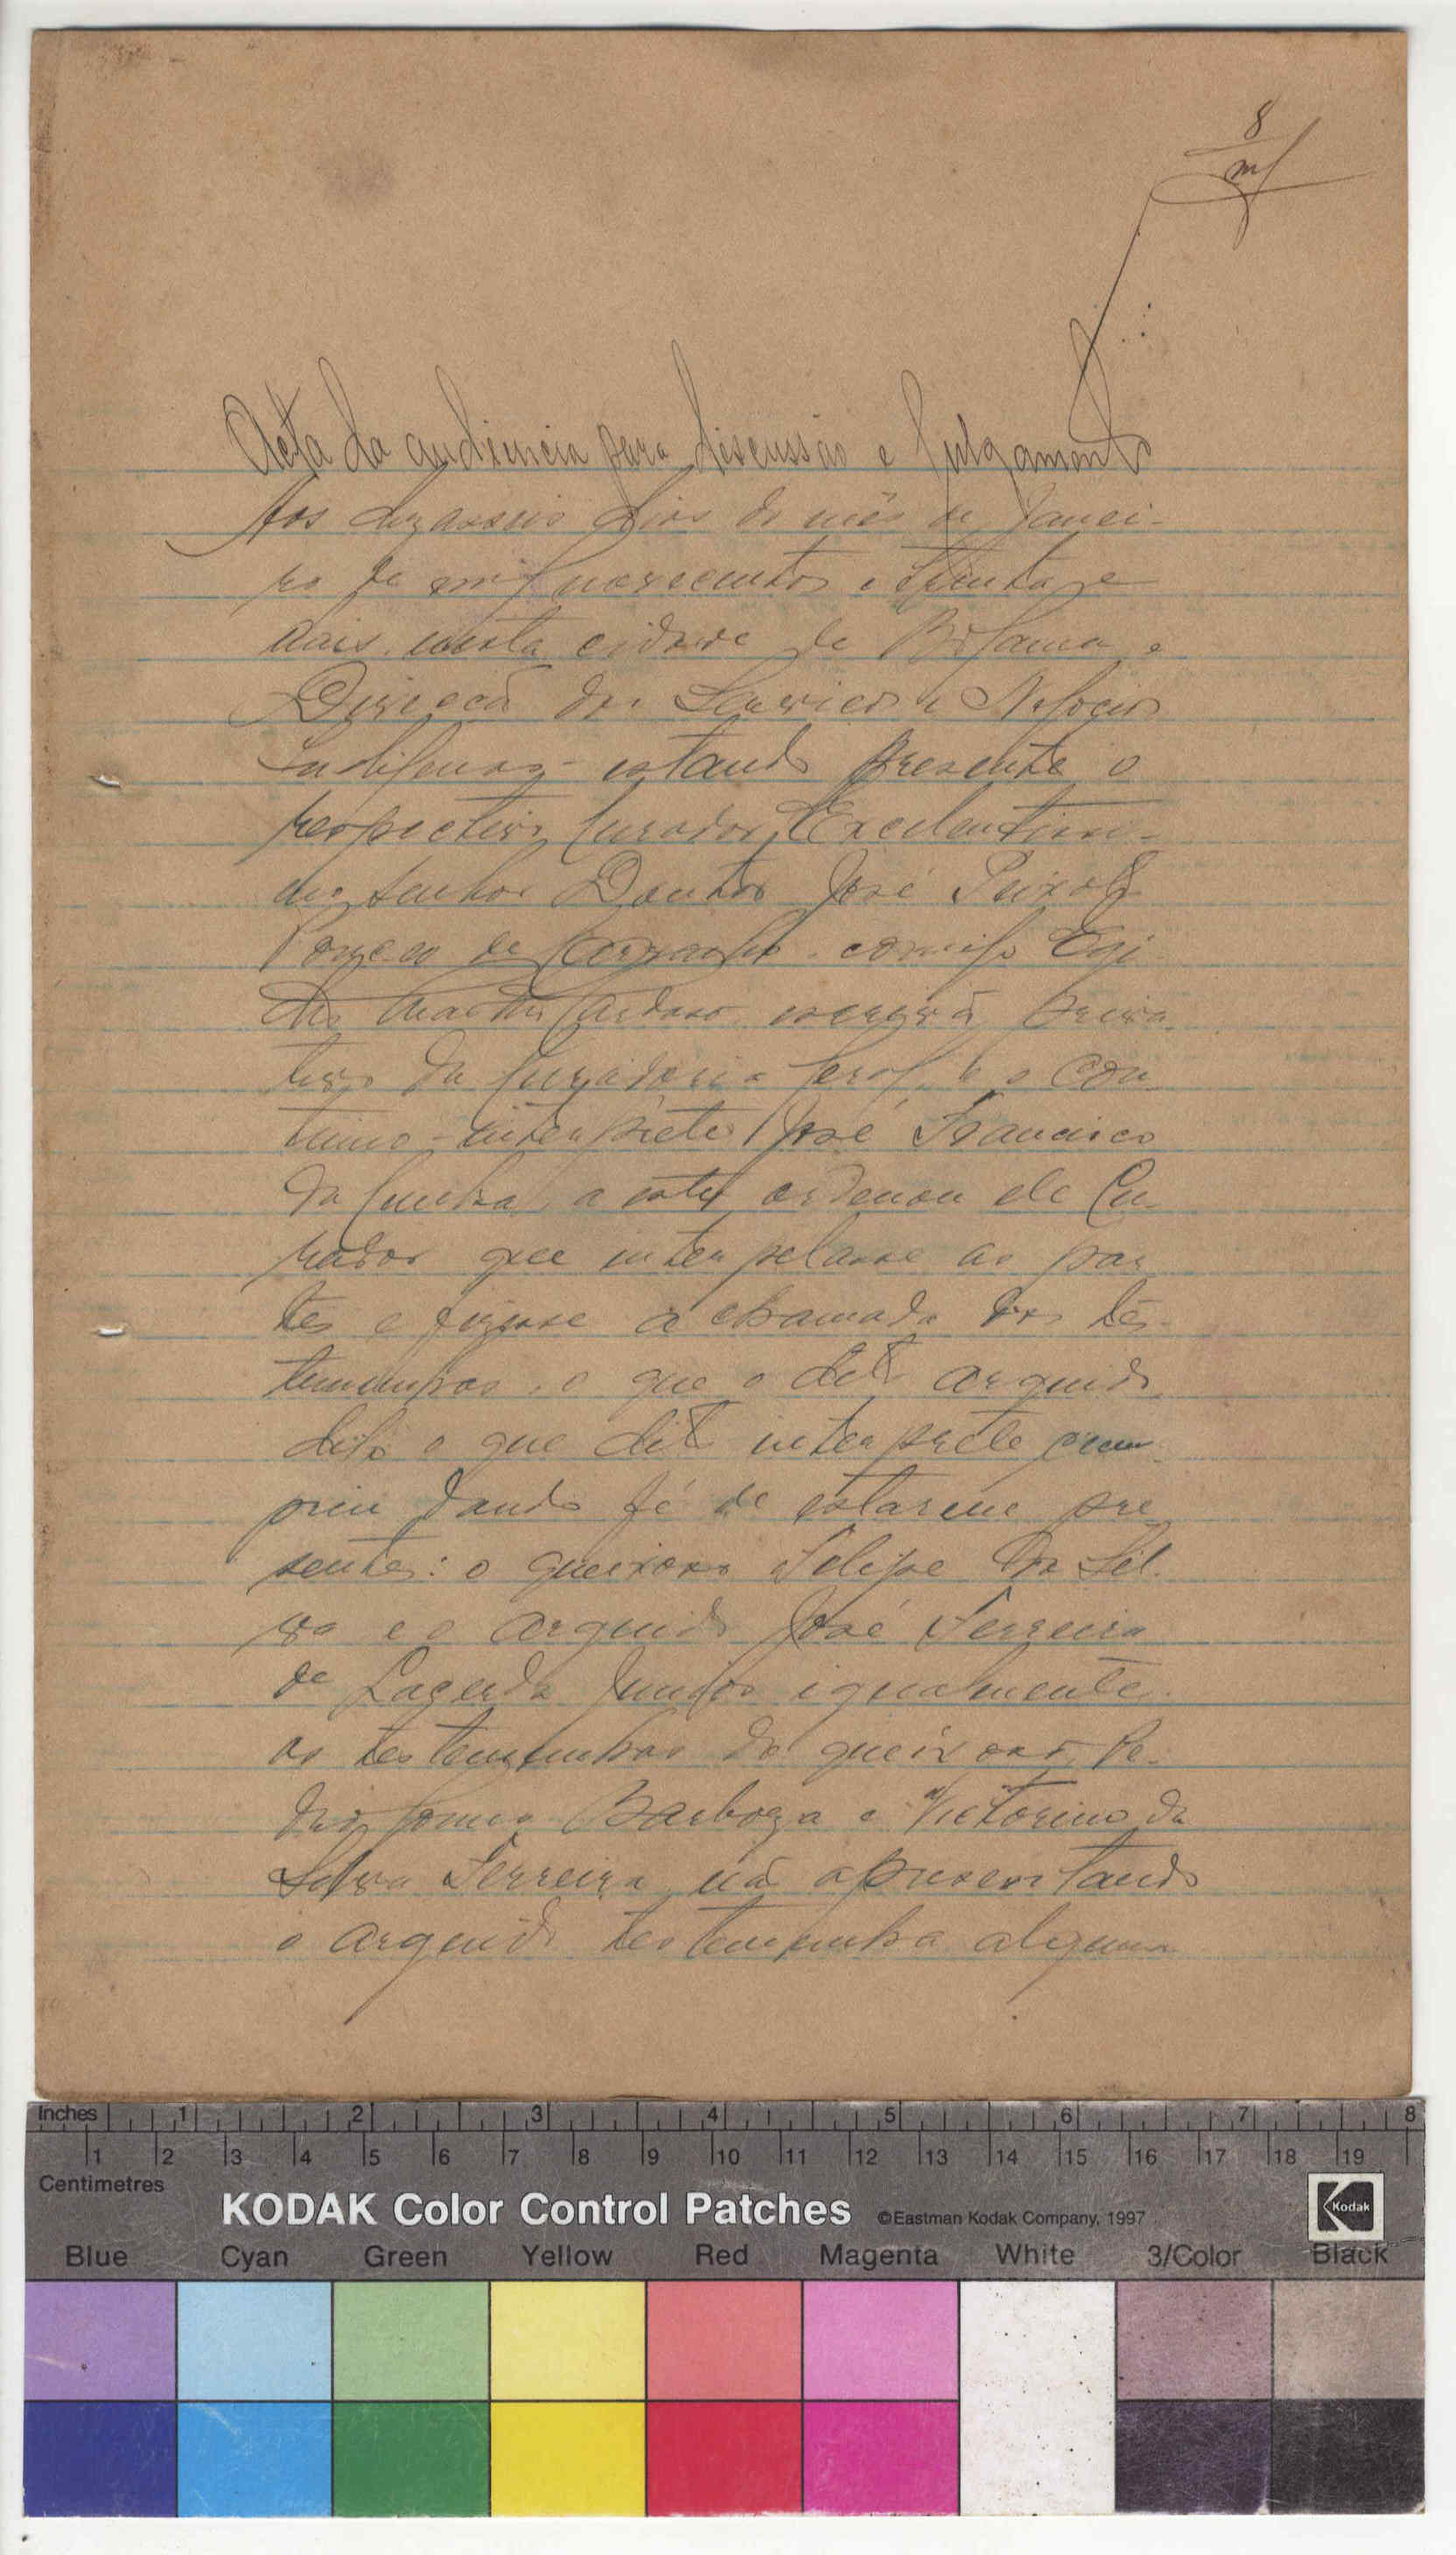 8
Acta da audiencia para discussão e julgamento
Aos dezasseis dias do mês de Janei-
ro de mil novecentos e trinta e
dois, nesta cidade de Bolama e
Direcção dos Serviços e Negocios
Indigenas estando presente o
respectivo Curador, Excelentissi-
mo Senhor Doutor José Peixoto
Ponces de Carvalho, comigo Egi
dio Cardoso escrivão priva
tivo da Curadoria Geral, e o con
tinuo-interprete José Francisco
da Cunha, a este ordenou ele Cu-
rador que interpelasse as par
tes e fizesse a chamada das tes-
temunhas, o que o dito arguido
digo o que dito interprete cum
priu dando fé de estarem pre
sentes: o queixoso Felipe da Sil-
va e o arguido José Ferreira
de Lacerda Junior igualmente
as testemunhas do queixoso, Pe-
dro Gomes Barboza e Victorino da
Silva Ferreira não apresentando
o arguido testemunha alguma
Inches 1 2 3 4 5 6 7 8
1 2 3 4 5 6 7 8 9 10 11 12 13 14 15 16 17 18 19
Centimetres
KODAK Color Control Patches ©Eastman Kodak Company, 1997 Kodak
Blue Cyan Green Yellow Red Magenta White 3/Color Black